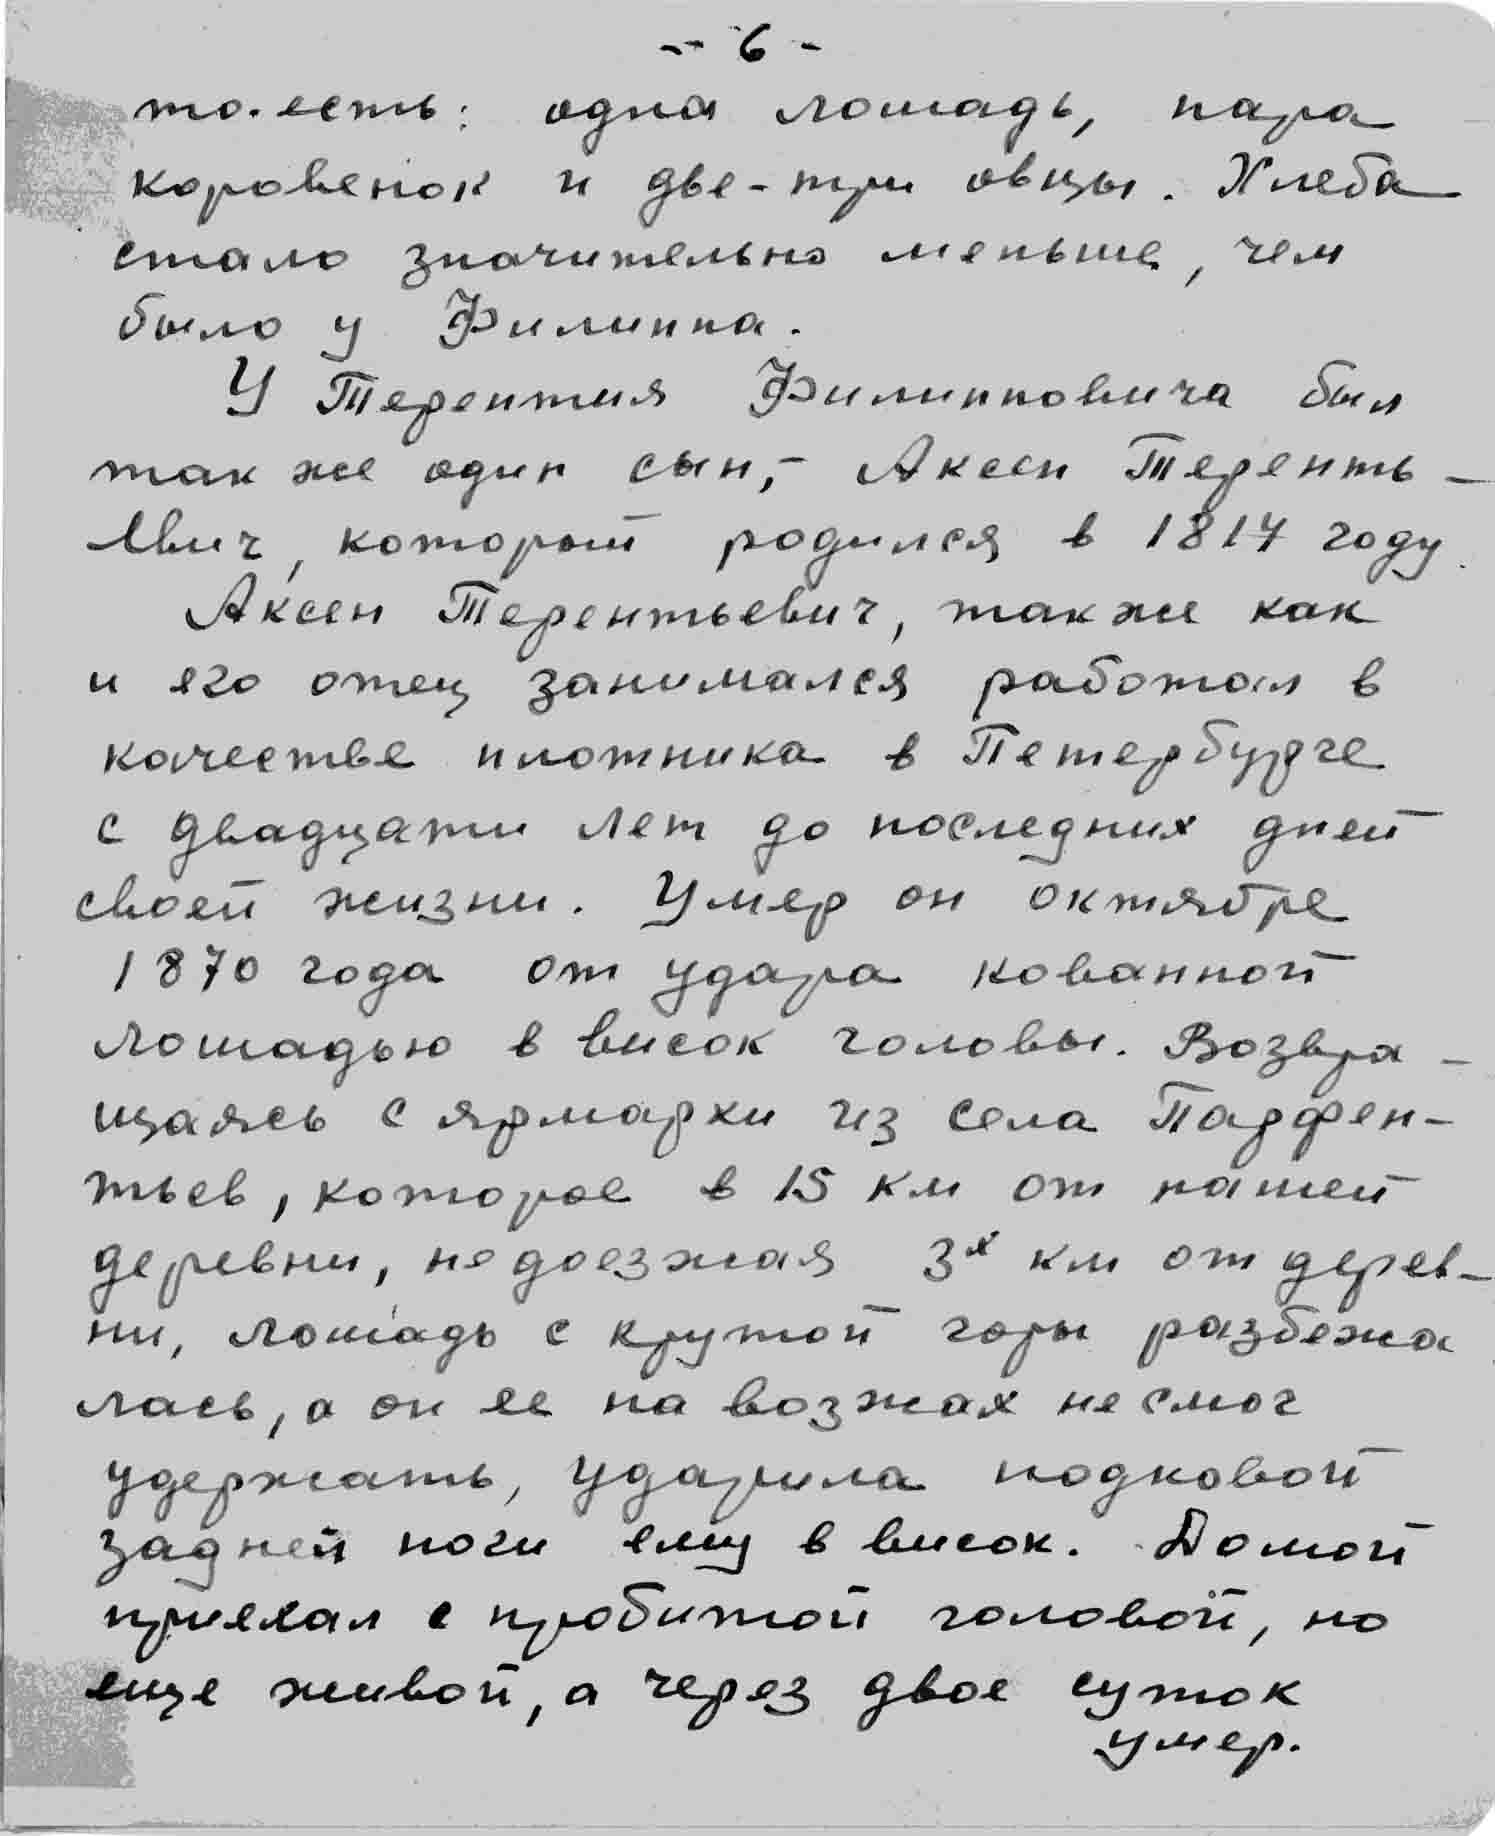 - 6 -
то.есть: одна лошадь, пара
коровенок и две-три овцы. Хлеба
стало значительно меньше, чем
было у Филиппа.
У Терентия Филипповича был
так же один сын,- Аксен Теренть-
евич, который родился в 1817 году.
Аксен Терентьевич, также как
и его отец занимался работал в
качестве плотника в Петербурге
с двадцати лет до последних дней
своей жизни. Умер он октябре
1870 года от удара кованной
лошадью в висок головы. Возвра-
щаясь с ярмарки из села Парфен-
тьев, которое в 15 км от нашей
деревни, не доезжая 3х км от дерев-
ни, лошадь с крутой горы разбежа
лась, а он ее на возжах не смог
удержать, ударила подковой
задней ноги ему в висок. Домой
приехал с пробитой головой, но
еще живой, а через двое суток
умер.